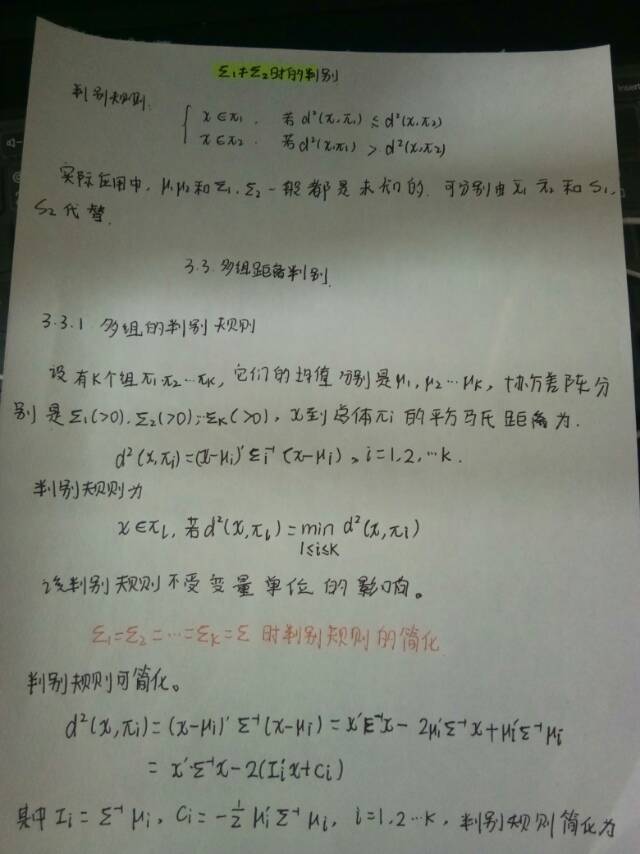 Σ₁≠Σ₂时的判别
判别规则:
{ x∈π₁, 若d²(x,π₁)≤d²(x,π₂)
x∈π₂. 若d²(x,π₁)>d²(x,π₂)
实际应用中, μ₁μ₂和Σ₁,Σ₂一般都是未知的. 可分别由x̄₁ x̄₂和S₁,
S₂代替.
3.3.多组距离判别
3.3.1 多组的判别规则
设有K个组π₁π₂…πₖ, 它们的均值分别是μ₁,μ₂…μₖ, 协方差阵分
别是Σ₁(>0).Σ₂(>0)…Σₖ(>0), x到总体πi的平方马氏距离为.
d²(x,πi)=(x-μi)′Σi⁻¹(x-μi), i=1,2,…k.
判别规则为
x∈πl, 若d²(x,πl)=min d²(x,πi)
1≤i≤K
该判别规则不受变量单位的影响。
Σ₁=Σ₂=…=Σₖ=Σ时判别规则的简化
判别规则可简化。
d²(x,πi)=(x-μi)′Σ⁻¹(x-μi)=x′Σ⁻¹x-2μi′Σ⁻¹x+μi′Σ⁻¹μi
=x′Σ⁻¹x-2(Ii′x+Ci)
其中Ii=Σ⁻¹μi, Ci=-½μi′Σ⁻¹μi, i=1,2…k, 判别规则简化为